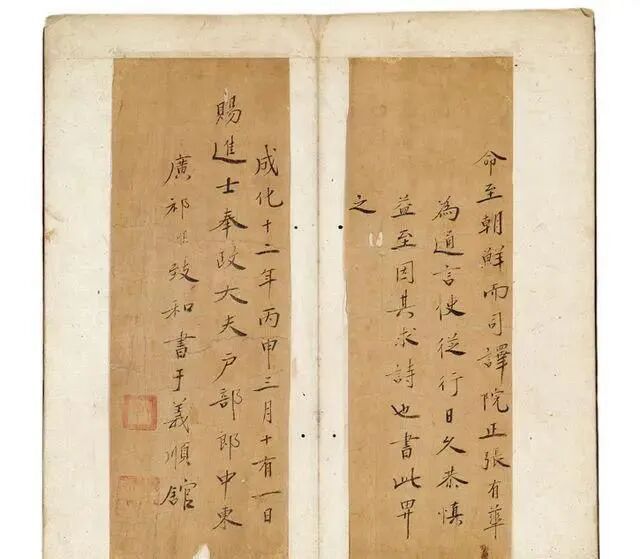 命至朝鮮而司譯院正張有華
為通言使從行日久恭慎
益至因其求詩也書此畀
之
成化十二年丙申三月十有一日
賜進士奉政大夫户部郎中東
廣祁順致和書于義順館